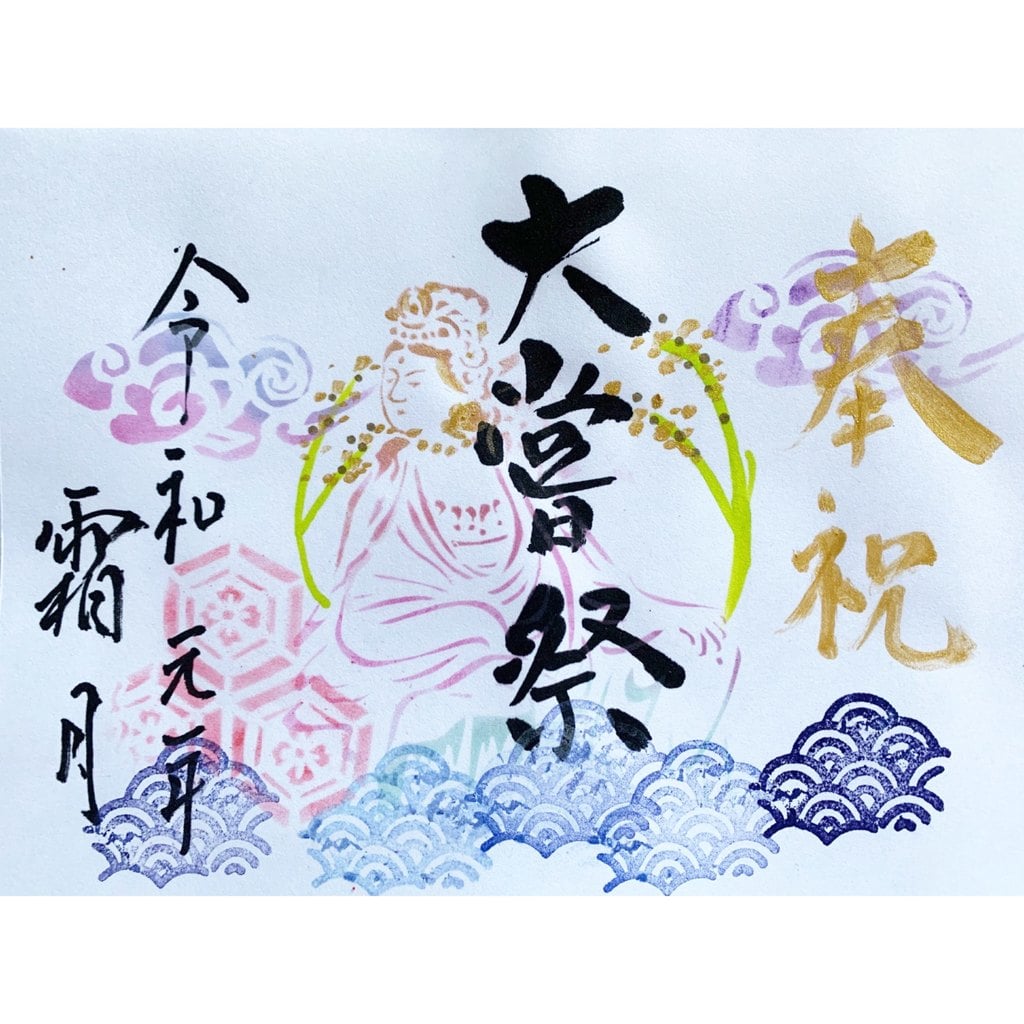 奉祝
大嘗祭
令和元年
霜月